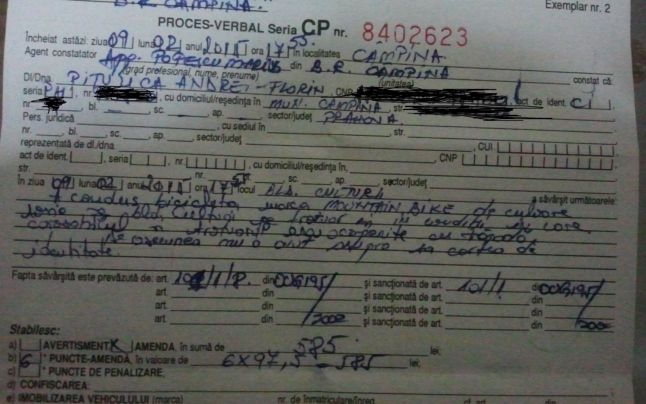 B.R. CAMPINA.
Exemplar nr. 2
PROCES-VERBAL Seria CP nr. 8402623
Încheiat astăzi: ziua 09 luna 02 anul 2015 ora 17 55 în localitatea CAMPINA
Agent constatator App. POPESCU MARIUS din B.R. CAMPINA
(grad profesional, nume, prenume) (unitatea) constat că:
Dl/Dna PITULICA ANDREI-FLORIN CNP
seria PH nr. , cu domiciliul/reşedinţa în MUN. CAMPINA, str. act de ident. CI
nr. bl. sc. ap. sector/judeţ PRAHOVA
Pers. juridică cu sediul în str.
nr. , bl. sc. ap. sector/judeţ , CUI
reprezentată de dl./dna
act de ident. , seria , nr. , cu domiciliul/reşedinţa în, , CNP
str. nr. sc. ap. sector/judeţ
În ziua 09 luna 02 anul 2015 ora 17 locul BLD. CULTURII a săvârşit următoarele:
A condus bicicleta marca MOUNTAIN BIKE de culoare
pe bld. Culturii pe trotuar si in conditii in care
carosabilul si trotuarul erau acoperite cu zapada.
De asemenea nu a avut asupra sa cartea de
identitate.
Fapta săvârşită este prevăzută de: art. din OUG195/ şi sancţionată de art. 101/1 din OUG195/
art. din 2002 şi sancţionată de art. din 2002
art. din şi sancţionată de art. din
art. din şi sancţionată de art. din
Stabilesc:
a) AVERTISMENT X AMENDA, în sumă de 585 lei;
b) 6 PUNCTE-AMENDĂ, în valoare de 6X97,5=585 lei;
c) PUNCTE DE PENALIZARE;
d) CONFISCAREA:
e) IMOBILIZAREA VEHICULULUI (marca) nr. de înmatriculare/înreg.